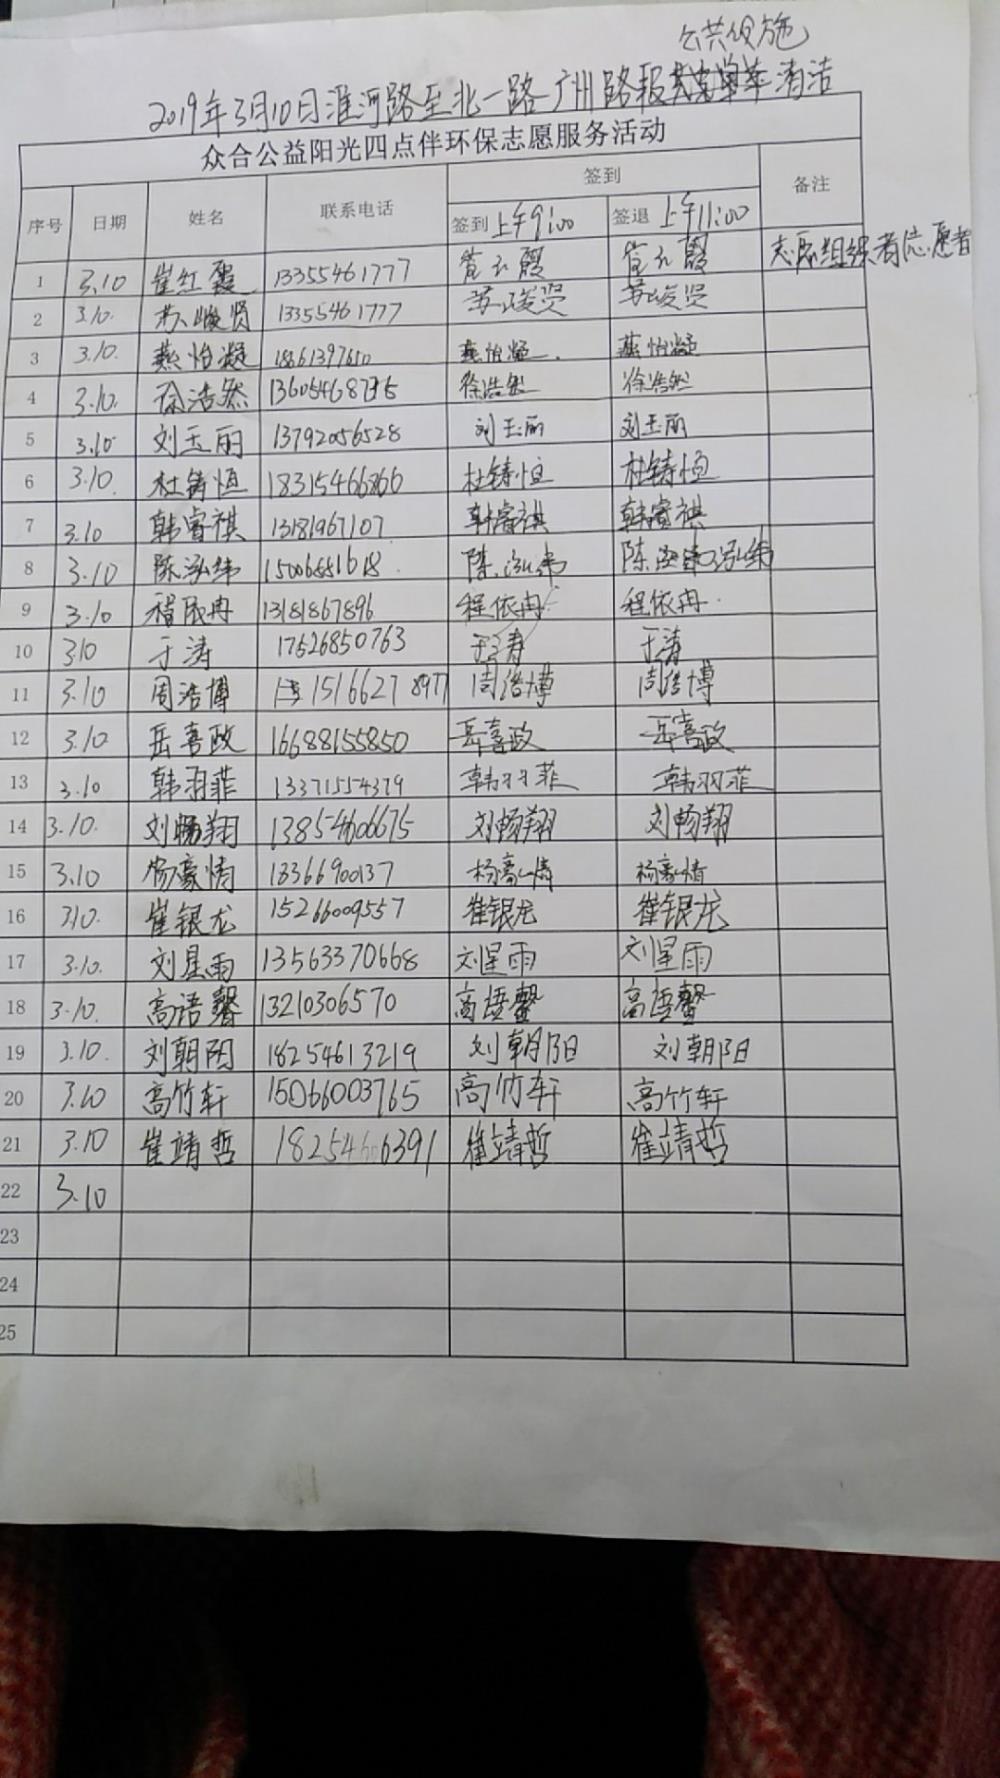 公共设施
2019年3月10日淮河路至北一路广州路 清洁
众合公益阳光四点伴环保志愿服务活动
序号 日期 姓名 联系电话 签到 备注
签到 上午9:00 签退 上午11:00
1 3.10 崔红霞 13355461777 崔红霞 崔红霞 志愿组织者志愿者
2 3.10. 苏峻贤 13355461777 苏峻贤 苏峻贤
3 3.10. 燕怡凝 18661397650 燕怡凝 燕怡凝
4 3.10. 徐浩然 徐浩然 徐浩然
5 3.10 刘玉丽 13792056528 刘玉丽 刘玉丽
6 3.10. 杜铸恒 杜铸恒 杜铸恒
7 3.10 韩睿祺 13181967107 韩睿祺 韩睿祺
8 3.10 陈泓纬 陈泓纬 陈泓纬
9 3.10 程依冉 13181867896 程依冉 程依冉
10 3.10 于涛 17626850763 于涛 于涛
11 3.10 周浩博 15166278977 周浩博 周浩博
12 3.10 岳喜政 16688155850 岳喜政 岳喜政
13 3.10 韩羽菲 13371554379 韩羽菲 韩羽菲
14 3.10. 刘畅翔 13854606675 刘畅翔 刘畅翔
15 3.10 杨豪情 18366900137 杨豪情 杨豪情
16 3.10. 崔银龙 15266009557 崔银龙 崔银龙
17 3.10. 刘星雨 13563370668 刘星雨 刘星雨
18 3.10. 高语馨 13210306570 高语馨 高语馨
19 3.10. 刘朝阳 18254613219 刘朝阳 刘朝阳
20 3.10 高竹轩 15066003765 高竹轩 高竹轩
21 3.10 崔靖哲 18254606391 崔靖哲 崔靖哲
22 3.10
23
24
25